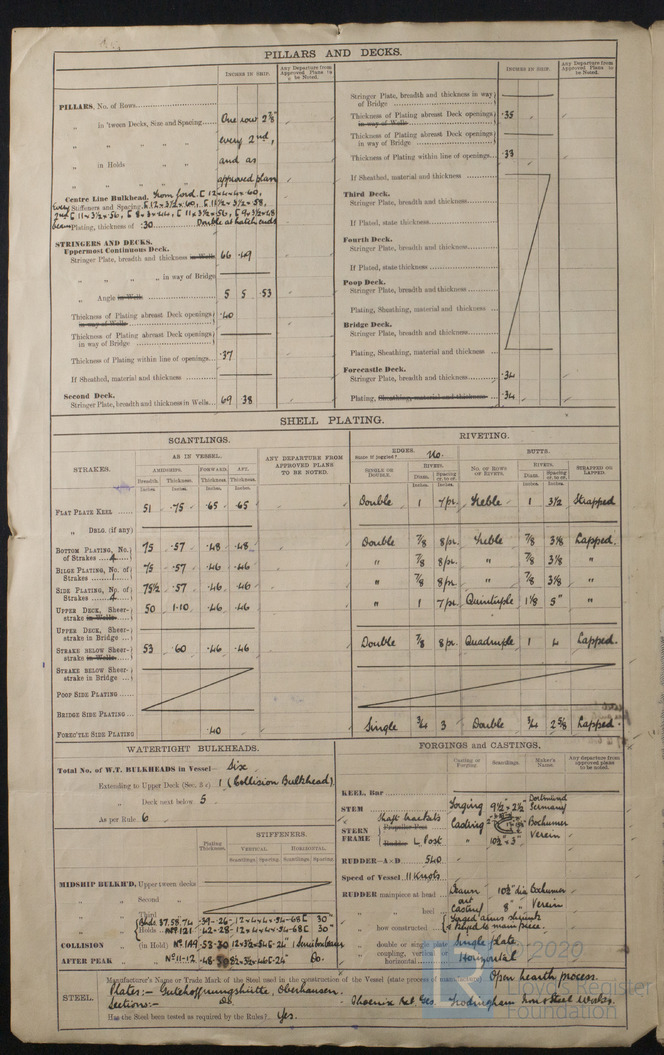 PILLARS AND DECKS.
DECKED IN SHIP.
Any Departure from Approved Plans to be Noted.
PILLARS, No. of Rows
„ in 'tween Decks, Size and Spacing One row 2⅞"
„ „ „ „ every 2nd,
„ in Holds „ „ and as
„ „ „ „ approved plan
Centre Line Bulkhead. From ford. [ 12×4×4×.60,
Every Stiffeners and Spacing [ 12×3½×.60, [ 11½×3½×.58,
2nd [ 11×3½×.56, [ 8×3×.44, [ 11×3½×.56, [ 9×3½×.48
beam Plating, thickness of .30 Double at hatch ends
STRINGERS AND DECKS.
Uppermost Continuous Deck.
Stringer Plate, breadth and thickness in Wells 66 .49
„ „ „ „ in way of Bridge
„ Angle in Wells 5 5 .53
Thickness of Plating abreast Deck openings in way of Wells .40
Thickness of Plating abreast Deck openings in way of Bridge
Thickness of Plating within line of openings .37
If Sheathed, material and thickness
Second Deck.
Stringer Plate, breadth and thickness in Wells 69 38
Stringer Plate, breadth and thickness in way of Bridge
Thickness of Plating abreast Deck openings in way of Wells .35
Thickness of Plating abreast Deck openings in way of Bridge
Thickness of Plating within line of openings .33
If Sheathed, material and thickness
Third Deck.
Stringer Plate, breadth and thickness
If Plated, state thickness
Fourth Deck.
Stringer Plate, breadth and thickness
If Plated, state thickness
Poop Deck.
Stringer Plate, breadth and thickness
Plating, Sheathing, material and thickness
Bridge Deck.
Stringer Plate, breadth and thickness
Plating, Sheathing, material and thickness
Forecastle Deck.
Stringer Plate, breadth and thickness .34
Plating, Sheathing, material and thickness .34
SHELL PLATING.
SCANTLINGS.
RIVETING.
STRAKES.
AS IN VESSEL.
AMIDSHIPS. FORWARD. AFT.
Breadth. Thickness. Thickness. Thickness.
Inches. Inches. Inches. Inches.
ANY DEPARTURE FROM APPROVED PLANS TO BE NOTED.
EDGES. No.
State if joggled?
SINGLE OR DOUBLE.
RIVETS.
Diam. Spacing cr. to cr.
BUTTS.
No. OF ROWS OF RIVETS.
RIVETS.
Diam. Spacing cr. to cr.
STRAPPED OR LAPPED.
FLAT PLATE KEEL 51 .75 .65 .65 Double 1 7/pr. Treble 1 3½ Strapped
„ DBLG. (if any)
BOTTOM PLATING, No. of Strakes 4 75 .57 .48 .48 Double ⅞ 8/pr. Treble ⅞ 3⅛ Lapped.
BILGE PLATING, No. of Strakes 1 75 .57 .46 .46 „ ⅞ 8/pr. „ ⅞ 3⅛ „
SIDE PLATING, No. of Strakes 4 75½ .57 .46 .46 „ ⅞ 8/pr. „ ⅞ 3⅛ „
UPPER DECK, Sheerstrake in Wells 50 1.10 .46 .46 „ 1 7/pr. Quintuple 1⅛ 5" „
UPPER DECK, Sheerstrake in Bridge
STRAKE BELOW Sheerstrake in Wells 53 .60 .46 .46 Double ⅞ 8/pr. Quadruple 1 4 Lapped.
STRAKE BELOW Sheerstrake in Bridge
POOP SIDE PLATING
BRIDGE SIDE PLATING
FOREC'TLE SIDE PLATING .40 Single ¾ 3 Double ¾ 2⅝ Lapped.
WATERTIGHT BULKHEADS.
Total No. of W.T. BULKHEADS in Vessel— Six
Extending to Upper Deck (Sec. 3 c) 1 (Collision Bulkhead)
„ Deck next below 5
As per Rule 6
Plating Thickness.
STIFFENERS.
VERTICAL. HORIZONTAL.
Scantlings. Spacing. Scantlings. Spacing.
MIDSHIP BULKH'D, Upper tween decks
„ „ Second „
„ „ Third „ Bhds 37,58,74 .39-.26 12×4×4×.54-.68 [ 30"
„ „ Holds No 121 .42-.28 12×4×4×.54-.68 [ 30"
COLLISION „ (in Hold) No 149 .53-.30
AFTER PEAK „ No 11-12 Do.
FORGINGS and CASTINGS.
Casting or Forging. Scantlings. Maker's Name. Any departure from approved plans to be noted.
KEEL, Bar
STEM Forging 9½×2½ Dortmund Germany
STERN FRAME Shaft brackets Propeller Post Casting Bochumer
Rudder L. Post „ 10½×3" Verein
RUDDER—A×D 540
Speed of Vessel 11 Knots
RUDDER mainpiece at head Bochumer
„ „ heel 8" Verein
how constructed & keyed to main piece.
double or single plate Single plate
coupling, vertical or horizontal Horizontal
STEEL.
Manufacturer's Name or Trade Mark of the Steel used in the construction of the Vessel (state process of manufacture) Open hearth process.
Plates:— Gutehoffnungshütte, Oberhausen.
Sections:— Do. Phoenix Frodingham Iron & Steel Works.
Has the Steel been tested as required by the Rules? Yes.
© 2020
Lloyd's Register
Foundation